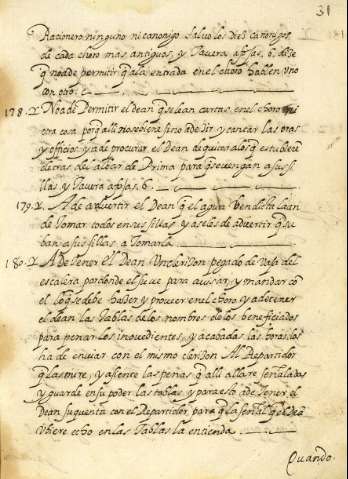 31
Racionero, ninguno ni canonigo salvo los dres canonigos
de cada choro mas antiguos, y
q̃ no a de permitir q̃ a la entrada en el choro hablen uno
con otro.
178. No a de Permitir el dean q̃ se lean cartas en el choro ni
otra cosa porq̃ alli no se viene sino a deçir y cantar las oras
y officios y a de procurar el Dean de quitar a los q̃ estubierẽ
detras del altar de Prima para q̃ se vengan a sus si-
llas y
179. A de advertir el Dean q̃ el agua bendita la an
de Tomar todos en sus sillas y a seles de advertir q̃ su-
ban a sus sillas a Tomarla
180. A De Tener el Dean Un cleriҫon pegado de baxo del
escalera por donde el sube para avissar y mandar cõ
el lo q̃ se debe hazer y proveer en el choro y a de tener
el dean las Tablas de los nombres de los beneficiados
para penar los inovedientes, y acabadas las horas los
ha de enviar con el mismo cleriҫon Al Repartidor
q̃ las mire, y assiente las penas q̃ alli allare señaladas
y guarde en su poder las tablas, y para esto a de Tener el
Dean su quenta con el Repartidor, para q̃ la señal q̃ el Deã
ubiere echo en las Tablas la entienda
Quando